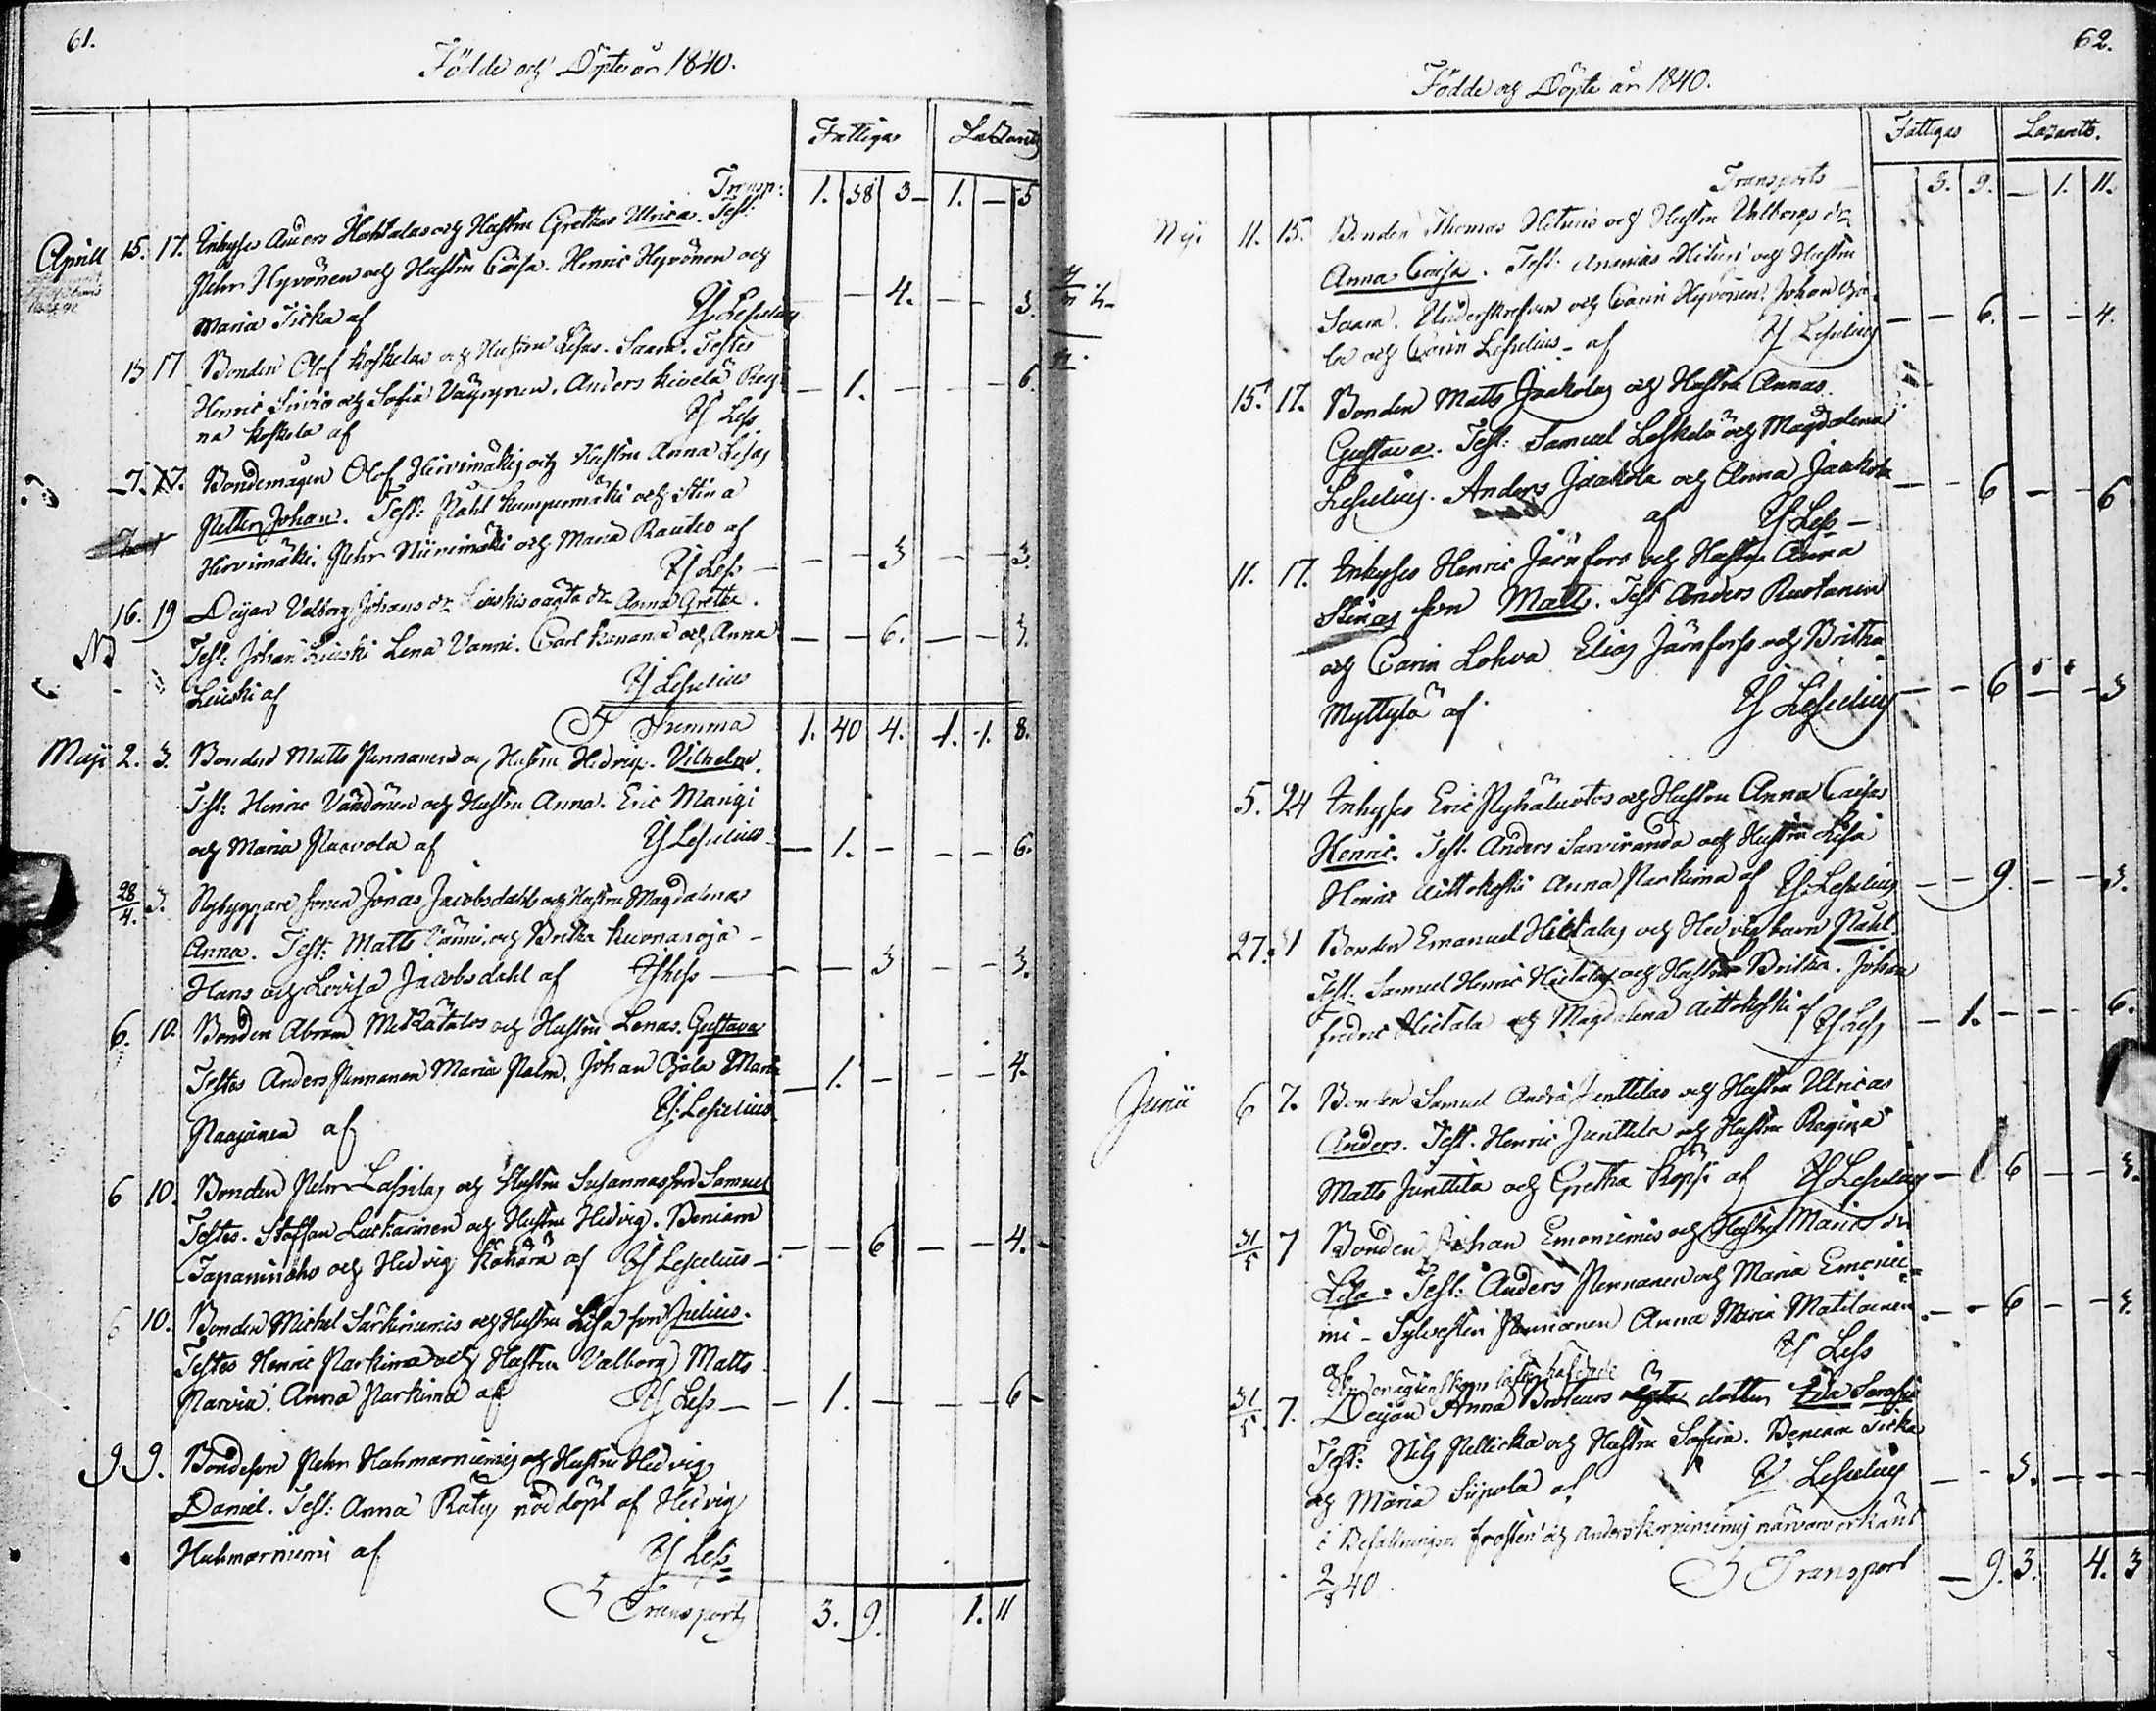 61.
Födde och Döpte år 1840.
Fattigas Lazarets
Transp: 1. 38 3 – 1. – 5
Aprill 15. 17. Inhyses Anders Hahtalas och Hustru Grethas Ulrica. Test:
Pehr Hyvönen och Hustru Caisa. Henric Hyvönen och
Maria Sicka af HLeselius – – 4. – – 3.
15 17 Bonden Olof Koskelas och Hustrun Lisas. Saara. Testes
Henric Sirviö och Sofia Väyrynen. Anders Kivelä Regi
na Koskela af H Less. – 1. – – – 6.
7. 17. Bondemågen Olof Hirvimäkis och Hustru Anna Lisas
Petter Johan. Test: Påhl Kumpumäki och Stina
Hirvimäki. Pehr Niinimäki och Maria Rautio af
H Less – – – 3 – – 3.
16. 19 Deijan Valborg Johans dr Leiskis oägta dr Anna Gretha.
Test: Johan Leiski Lena Vanni. Carl Kanana och Anna – – 6. – – 3.
Leiski af H Leselius
Summa 1. 40 4. 1. 1. 8.
Maji 2. 3. Bonden Matts Pennanens och Hustru Hedvig. Vilhelm.
Test: Henric Väudönen och Hustru Anna. Eric Mangi
och Maria Paavola af H Leselius – 1. – – – 6.
28/4. 3. Nybyggare sonen Jonas Jacobsdahls och Hustru Magdalenas
Anna. Test: Matts Vänni och Britha Kuonanoja –
Hans och Lovisa Jacobsdahl af H Less – – – 3 – – 3.
6. 10. Bonden Abram Mikkätalos och Hustru Lenas. Gustava
Testes Anders Pennanen Maria Palm. Johan Ojala Maria – 1. – – – 4.
Paajanen af H: Leselius
6 10. Bonden Pehr Lassilas och Hustru Susannas son Samuel
Testes. Staffan Luckarinen och Hustru Hedvig. Beniam
Tapaninaho och Hedvig Kähärä af H Leselius – – – 6 – – 4.
6 10. Bonden Michel Särkiniemis och Hustru Lisa son Julius.
Testes Henric Parkima och Hustru Valborg Matts
Narvia. Anna Parkima af H Less – – 1. – – – 6 –
9. 9. Bondeson Pehr Huhmarniemis och Hustru Hedvigs
Daniel. Test: Anna Räty nöddöpt af Hedvig
Huhmarniemi af H Less
Transport 3. 9. 1. 11
62.
Födde och Döpte år 1840.
Fattigas Lazarets.
Transports 3. 9. – 1. 11.
Maji 11. 15. Bonden Thomas Hituris och Hustru Valborgs dr
Anna Caisa. Test: Ananias Hituri och Hustru
Saara. Underskrefven och Carin Hyvönen. Johan Oja
la och Carin Leselius – af H Leselius – – 6. – – 4.
15. 17. Bonden Matts Jaakolas och Hustru Annas
Gustava. Test: Samuel Leskelä och Magdalena
Leselius. Anders Jaakola och Anna Jaakola
af H Less – – – 6 – – 6.
11. 17. Inhyses Henric Järnfors och Hustru Anna
Stinas son Matts. Test Anders Rustanen
och Carin Lohva Elias Järnforss och Britha
Myttylä af H Leselius – – 6 – – 3
5. 24 Inhyses Eric Pyhäluotos och Hustru Anna Caisas
Henric. Test. Anders Sarviranda och Hustru Lisa
Henric Aittokoski Anna Parkima af H: Leselius – – 9. – – 3.
27. 31 Bonden Emanuel Hietalas och Hedvigs barn Påhl.
Test. Samuel Henric Hietala och Hustru Britha. Johan
Fredric Hietala och Magdalena Aittokoski af H Less – 1. – – – 6.
Junii 6 7. Bonden Samuel Andrs Junttilas och Hustru Ulricas
Anders. Test. Henric Junttila och Hustru Regina
Matts Junttila och Gretha Kopsi af H Leselius – – 6 – – 3.
31/5 7 Bonden Johan Emoniemis och Hustru Marias dr
Lisa. Test: Anders Pennanen och Maria Emonie=
mi – Sylvester Pennanen Anna Maria Matilainen – – 6 – – 3.
af H Less
31/5. 7. Deijan Anna Brotcurs dotter Eva Sarafia
Test: Nils Pellicka och Hustru Sofia. Beniam Sicka
och Maria Siipola af H Leselius – – 3. – – –
i Befallningsm Frosteri och Anders Karpiniemis närvaro erkänt
2/8 40. Transport – 9. 3. 4. 3